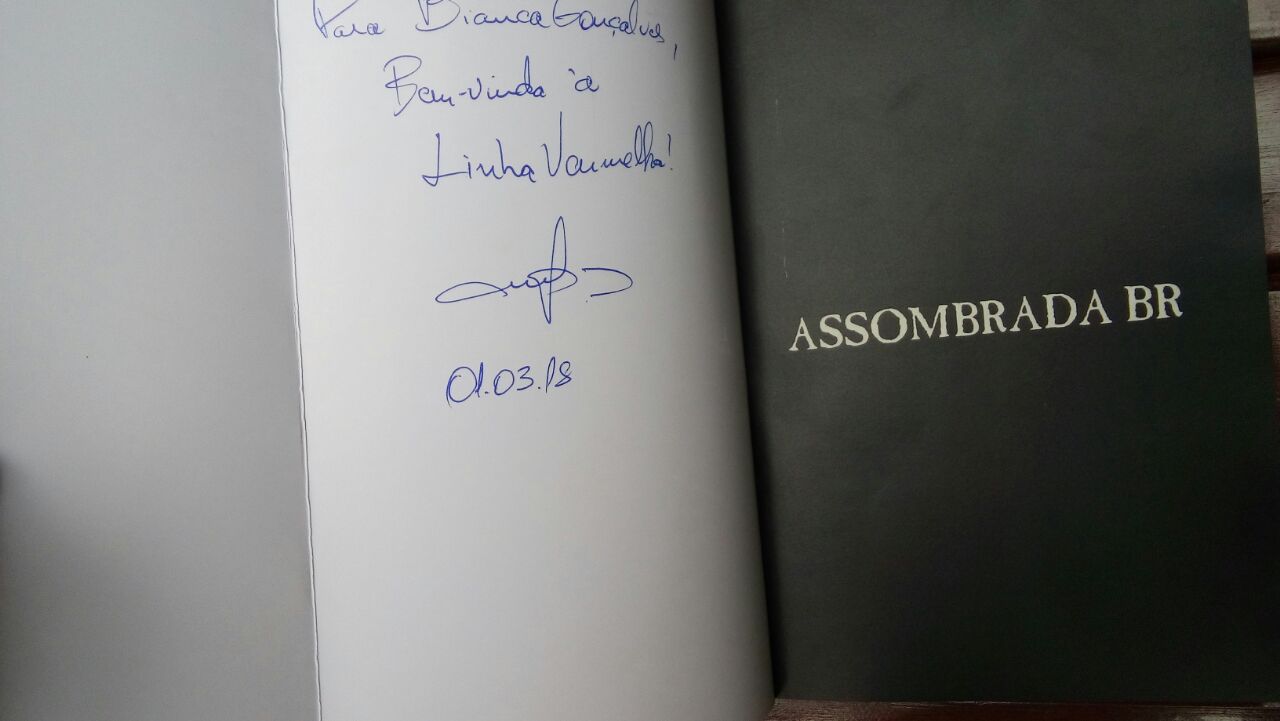 Para Bianca Gonçalves,
Bem-vinda à
Linha Vermelha!
01.03.18
ASSOMBRADA BR